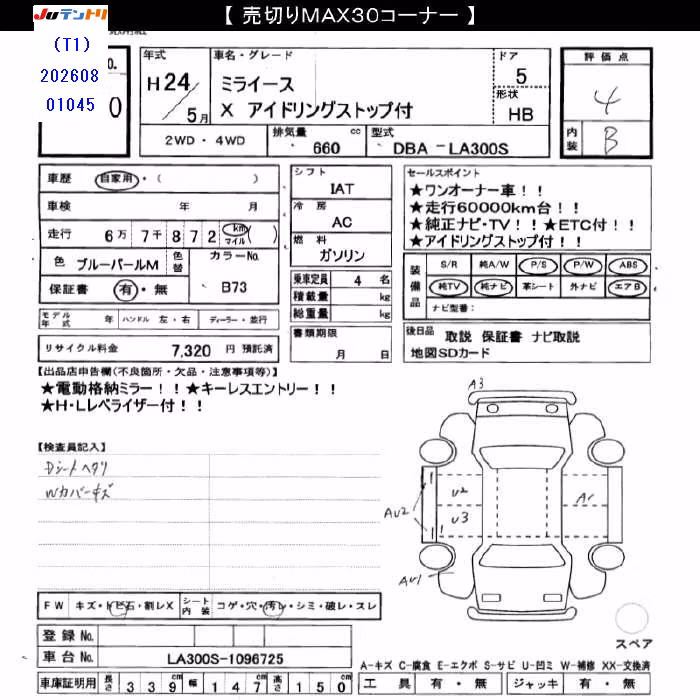 【 売切りMAX30コーナー 】
JUテントリ
(T1)
202608
01045
No.
0
年式
H24
5月
車名・グレード
ミライース
X アイドリングストップ付
ドア
5
形状
HB
2WD・4WD
排気量 660 cc
型式 DBA -LA300S
評価点
4
内装
B
車歴 自家用・( )
車検 年 月
走行 6万 7千 8 7 2 km マイル ( )
色 ブルーパールM 色替
カラーNo.
B73
保証書 有・無
モデル年式 年 ハンドル 左・右 ディーラー・並行
リサイクル料金 7,320 円 預託済
シフト
IAT
冷房
AC
燃料
ガソリン
乗車定員 4 名
積載量 kg
総重量 kg
書類期限
月 日
セールスポイント
★ワンオーナー車！！
★走行60000km台！！
★純正ナビ・TV！！★ETC付！！
★アイドリングストップ付！！
装備品
S/R 純A/W P/S P/W ABS
純TV 純ナビ 革シート 外ナビ エアB
ナビ型番:
後日品 取説 保証書 ナビ取説
地図SDカード
【出品店申告欄(不良箇所・欠品・注意事項等)】
★電動格納ミラー！！★キーレスエントリー！！
★H・Lレベライザー付！！
【検査員記入】
Dシートヘタリ
Wカバーキズ
A3
U2
U3
A1
AU2
AU1
スペア
FW キズ・トビ石・割レX
シート内装 コゲ・穴・汚レ・シミ・破レ・スレ
登録No.
車台No. LA300S-1096725
車庫証明用 長さ 339cm 幅 147cm 高さ 150cm
A-キズ C-腐食 E-エクボ S-サビ U-凹ミ W-補修 XX-交換済
工具 有・無 ジャッキ 有・無